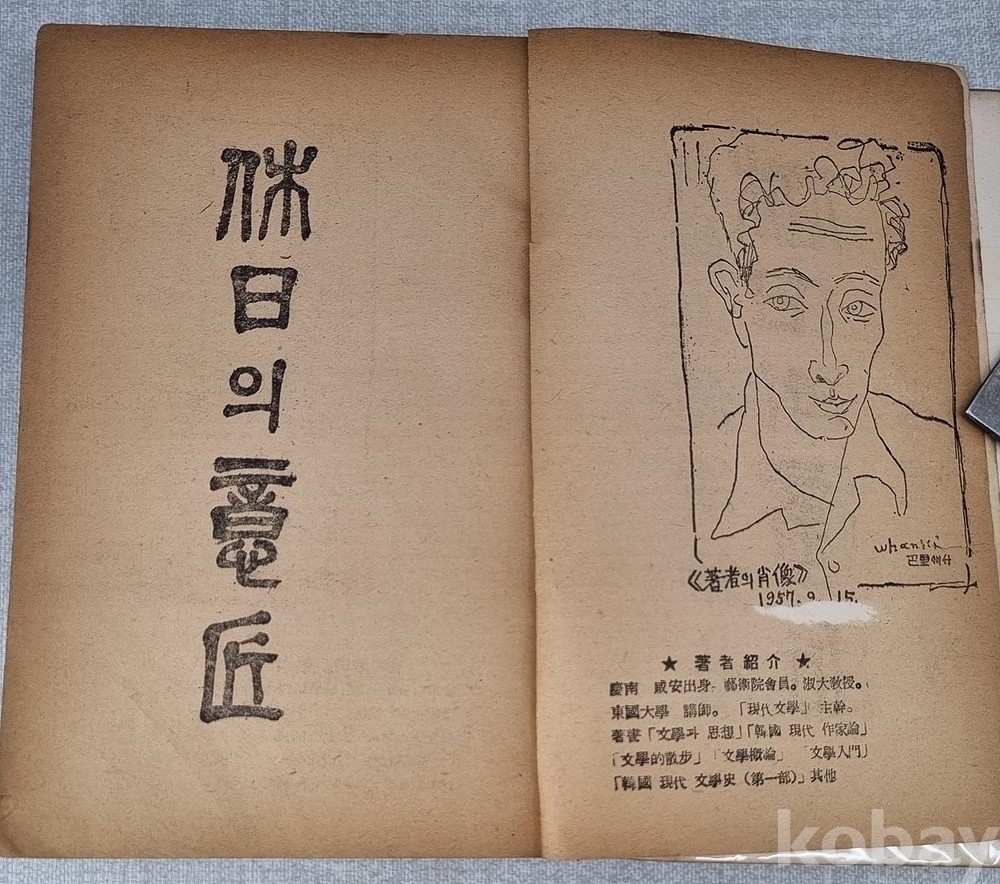 休日의意匠
whanki
巴里에서
《著者의肖像》
1957. 9. 15.
★ 著者紹介 ★
慶南 咸安出身. 藝術院會員。淑大敎授。
東國大學 講師。 「現代文學」 主幹。
著書「文學과 思想」「韓國 現代 作家論」
「文學的散步」 「文學槪論」 「文學入門」
「韓國 現代 文學史 (第一部)」其他
kobay